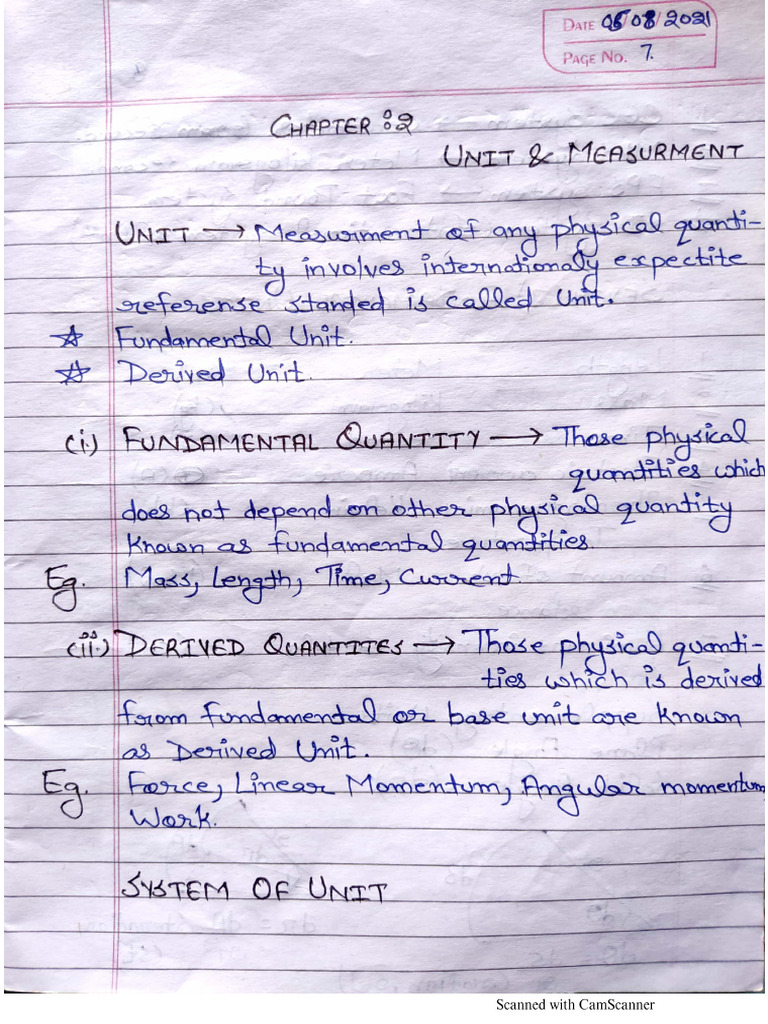 DATE 05/08/2021
PAGE NO. 7.
CHAPTER :2
UNIT & MEASURMENT
UNIT → Measurment of any physical quanti-
ty involves internationaly expectite
referense standed is called Unit.
☆ Fundamental Unit.
☆ Derived Unit.
(i.) FUNDAMENTAL QUANTITY → Those physical
quantities which
does not depend on other physical quantity
known as fundamental quantities.
Eg. Mass, Length, Time, Current.
(ii.) DERIVED QUANTITES → Those physical quanti-
ties which is derived
from fundamental or base unit are known
as Derived Unit.
Eg. Force, Linear Momentum, Angular momentum
Work.
SYSTEM OF UNIT
Scanned with CamScanner